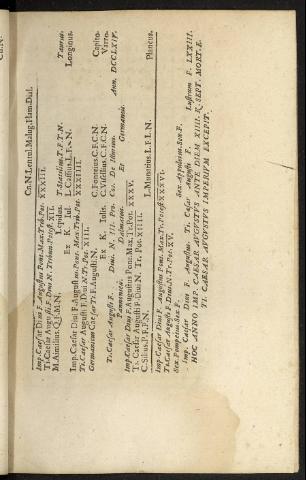 Cn.N.Lentul.Malug.Flam.Dial.
Imp.Caesar Diui F.Augustus Pont.Max.Trib.Pot. XXXIII.
Ti.Caesar Augusti F.Diui N. Tribun.Potest. XII.
M.Aimilius.Q.F.M.N. Lepidus. T.Statilius.T.F.T.N. Taurus.
Ex K. Iul. L.Cassius.L.F. N. Longinus.
Imp.Caesar Diui F.August.us Pont. Max.Trib.Pot. XXXIIII.
Ti.Caesar Augusti F.Diui N.Tr.Pot. XIII.
Germanicus Caesar Ti.F.Augusti N. C.Fonteius.C.F.C.N. Capito.
Ex K. Iulis. C.Visellius.C.F.C.N. Varro.
Ti.Caesar Augusti F. Diui. N. III. Pro. Cos. De Illurieis. Ann. DCCLXIV.
Pannonieis. Dalmateisque. Et Germaneis.
Imp.Caesar Diui F.Augustus Pont.Max.Tr.Pot. XXXV.
Ti. Caesar Augusti F.Diui N. Tr. Pot. XIIII.
C.Silius.P.F.P.N. L.Munatius.L.F.L.N. Plancus.
Imp.Caesar Diui F. Augustus Pont.Max.Tr.Potest XXXVI.
Ti.Caesar Augusti F.Diui N.Tr.Pot. XV.
Sex.Pompeius.Sex.F. Sex.Appuleius.Sex.F.
Imp. Caesar Diui F. Augustus. Ti. Caesar Augusti F. Lustrum F. LXXIII.
HOC ANNO IMP. CAESAR AVGVSTVS ANTE DIEM XIIII. K. SEPT. MORT.Æ.
TI. CAESAR AVGVSTVS IMPERIVM EXCEPIT.